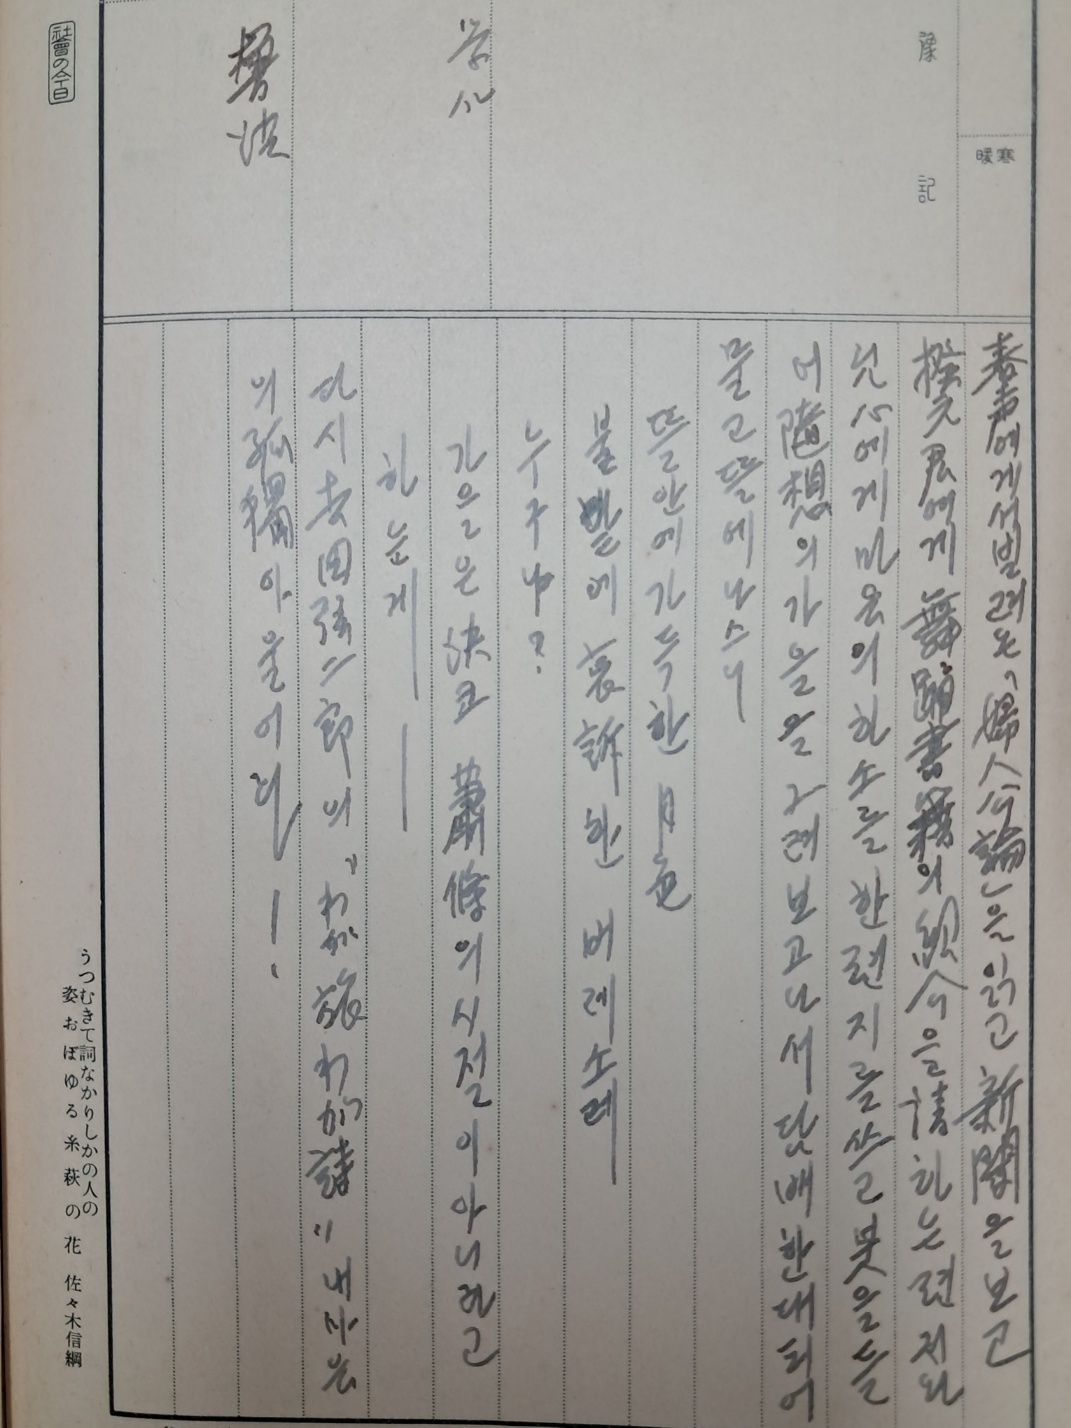 寒暖
豫記
春声에게서 빌려온 「婦人公論」을 읽고 新聞을 보고
君에게 舞踊書籍의 紹介를 請하는 편지와
에게 마음의 하소를 한 편지를 쓰고 붓을 들
어 隨想의 가을을 그려보고 나서 담배 한 대 피어
물고 뜰에 나스니
뜰 안에 가득한 月色
풀밭에 哀訴한 버레소래
누구냐?
가을은 決코 蕭條의 시절이 아니라고
하는 게 ――
다시 吉田絃二郎의 "わが旅わが詩" 내 마음
의 孤獨아 울어라 ― !
社會の今日
うつむきて詞なかりしかの人の
姿おぼゆる糸萩の花 佐々木信綱